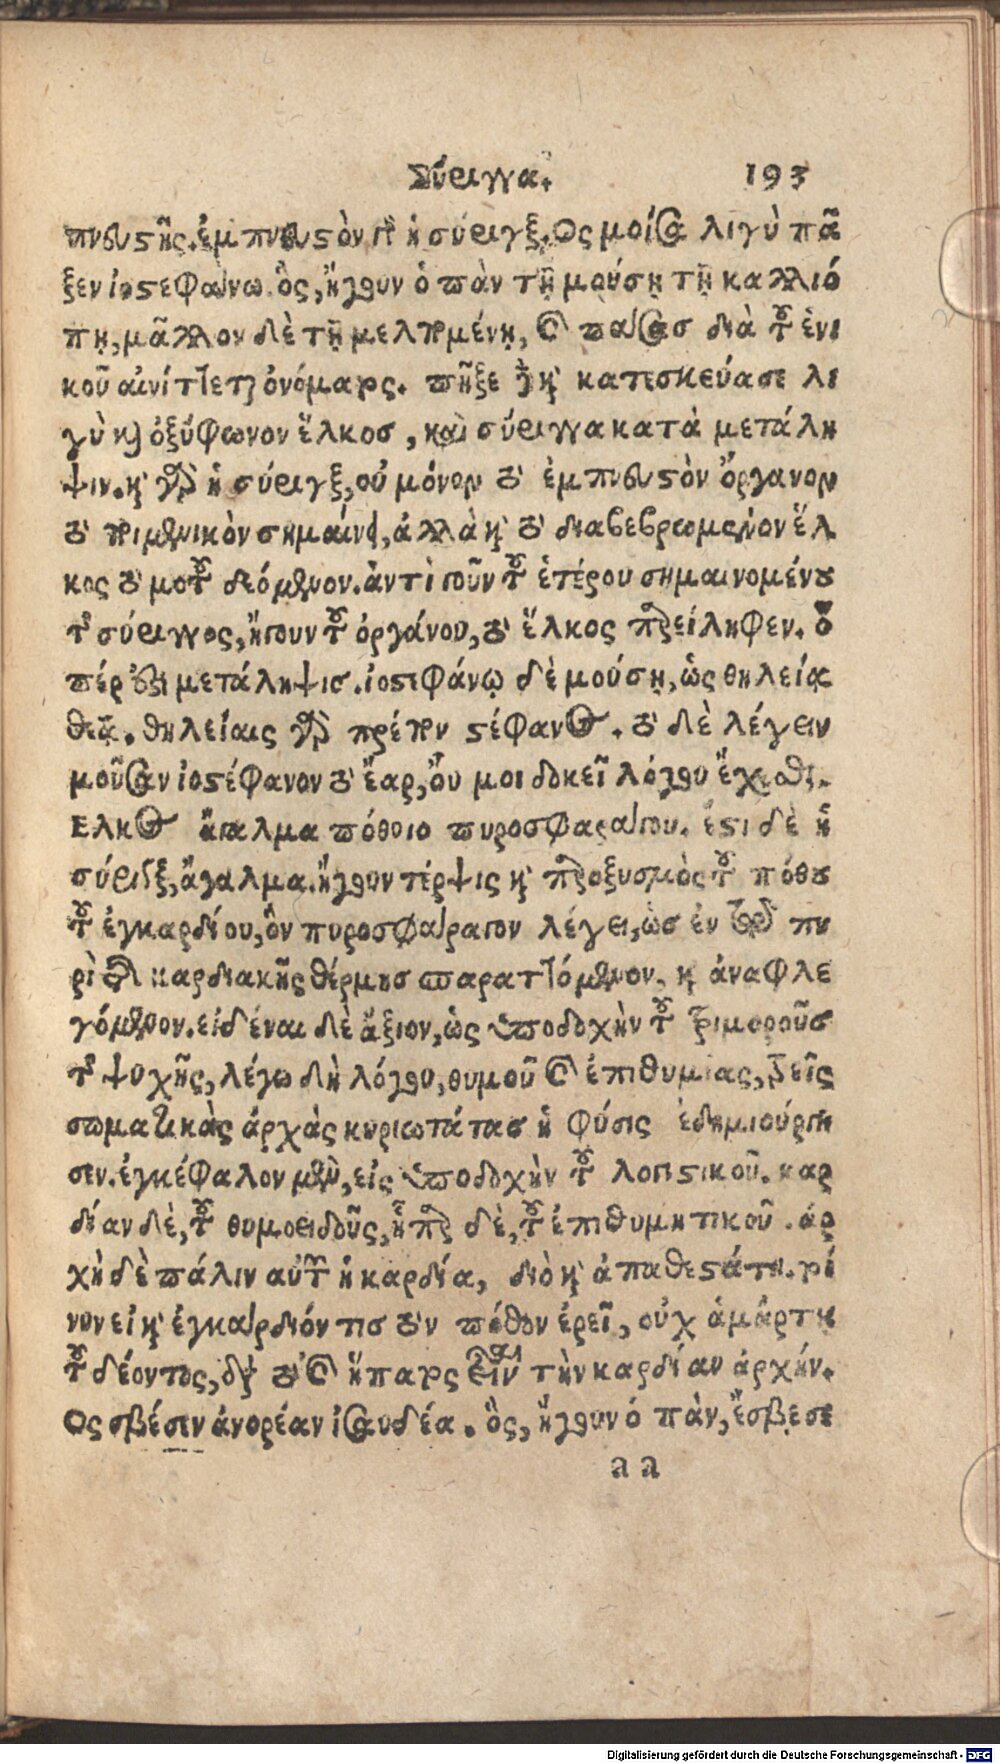 Σύριγγα. 193
πνευστῆς. ἐμπνευστὸν γὸ ἡ σύριγξ. Ος μοίσα λιγὺ πᾶ
ξεν ἰοστεφάνω. ὃς, ἤγουν ὁ πὰν τῇ μούσῃ τῇ καλλιό
πῃ, μᾶλλον δὲ τῇ κελ μένῃ, καὶ πάσας διὰ τοῦ ἑνι
κοῦ αἰνίττεται ὀνόματος. πῆξε καὶ κατεσκεύασε λι
γὺ καὶ ὀξύφωνον ἕλκος, καὶ σύριγγα κατὰ μετάλη
ψιν. καὶ γὰρ ἡ σύριγξ, οὐ μόνον τὸ ἐμπνευστὸν ὄργανον
τὸ ποιμενικὸν σημαίνει, ἀλλὰ καὶ τὸ διαβεβρωμένον ἕλ
κος τὸ μοτοῦ δεόμενον. ἀντὶ γοῦν τοῦ ἑτέρου σημαινομένου
τῆς σύριγγος, ἤγουν τοῦ ὀργάνου, τὸ ἕλκος παρείληφεν. ὅ
πέρ ἐστι μετάληψις. ἰοστεφάνῳ δὲ μούσῃ, ὡς θηλείᾳ
θεᾷ. θηλείαις γὰρ πρέπει στέφανος. τὸ δὲ λέγειν
μοῦσαν ἰοστέφανον τὸ ἔαρ, οὔ μοι δοκεῖ λόγου ἔχεσθαι.
Ελκος ἄγαλμα πόθοιο πυροσφαράγου. ἔστι δὲ ἡ
σύριγξ, ἄγαλμα. ἤγουν τέρψις καὶ παροξυσμὸς τοῦ πόθου
τοῦ ἐγκαρδίου, ὃν πυροσφάραγον λέγει, ὡς ἐν τῷ πυ
ρὶ τῆς καρδιακῆς θέρμης παραττόμενον, καὶ ἀναφλε
γόμενον. εἰδέναι δὲ ἄξιον, ὡς ὑποδοχὴν τοῦ τριμεροῦς
τῆς ψυχῆς, λέγω δὴ λόγου, θυμοῦ καὶ ἐπιθυμίας, τρεῖς
σωματικὰς ἀρχὰς κυριωτάτας ἡ φύσις ἐδημιούργη
σεν. ἐγκέφαλον μὲν, εἰς ὑποδοχὴν τοῦ λογιστικοῦ. καρ
δίαν δὲ, τοῦ θυμοειδοῦς, ἧπαρ δὲ, τοῦ ἐπιθυμητικοῦ. ἀρ
χὴ δὲ πάλιν αὐτῶν ἡ καρδία, διὸ καὶ ἀπαθεστάτη. τοί
νυν εἰ καὶ ἐγκάρδιόν τις τὸν πόθον ἐρεῖ, οὐχ ἁμάρτῃ
τοῦ δέοντος, διὰ τὸ καὶ ἥπατος εἶναι τὴν καρδίαν ἀρχήν.
Ος σβέσεν ἀνορέαν ἰσαυδέα. ὃς, ἤγουν ὁ πὰν, ἔσβεσε
a a
Digitalisierung gefördert durch die Deutsche Forschungsgemeinschaft - DFG